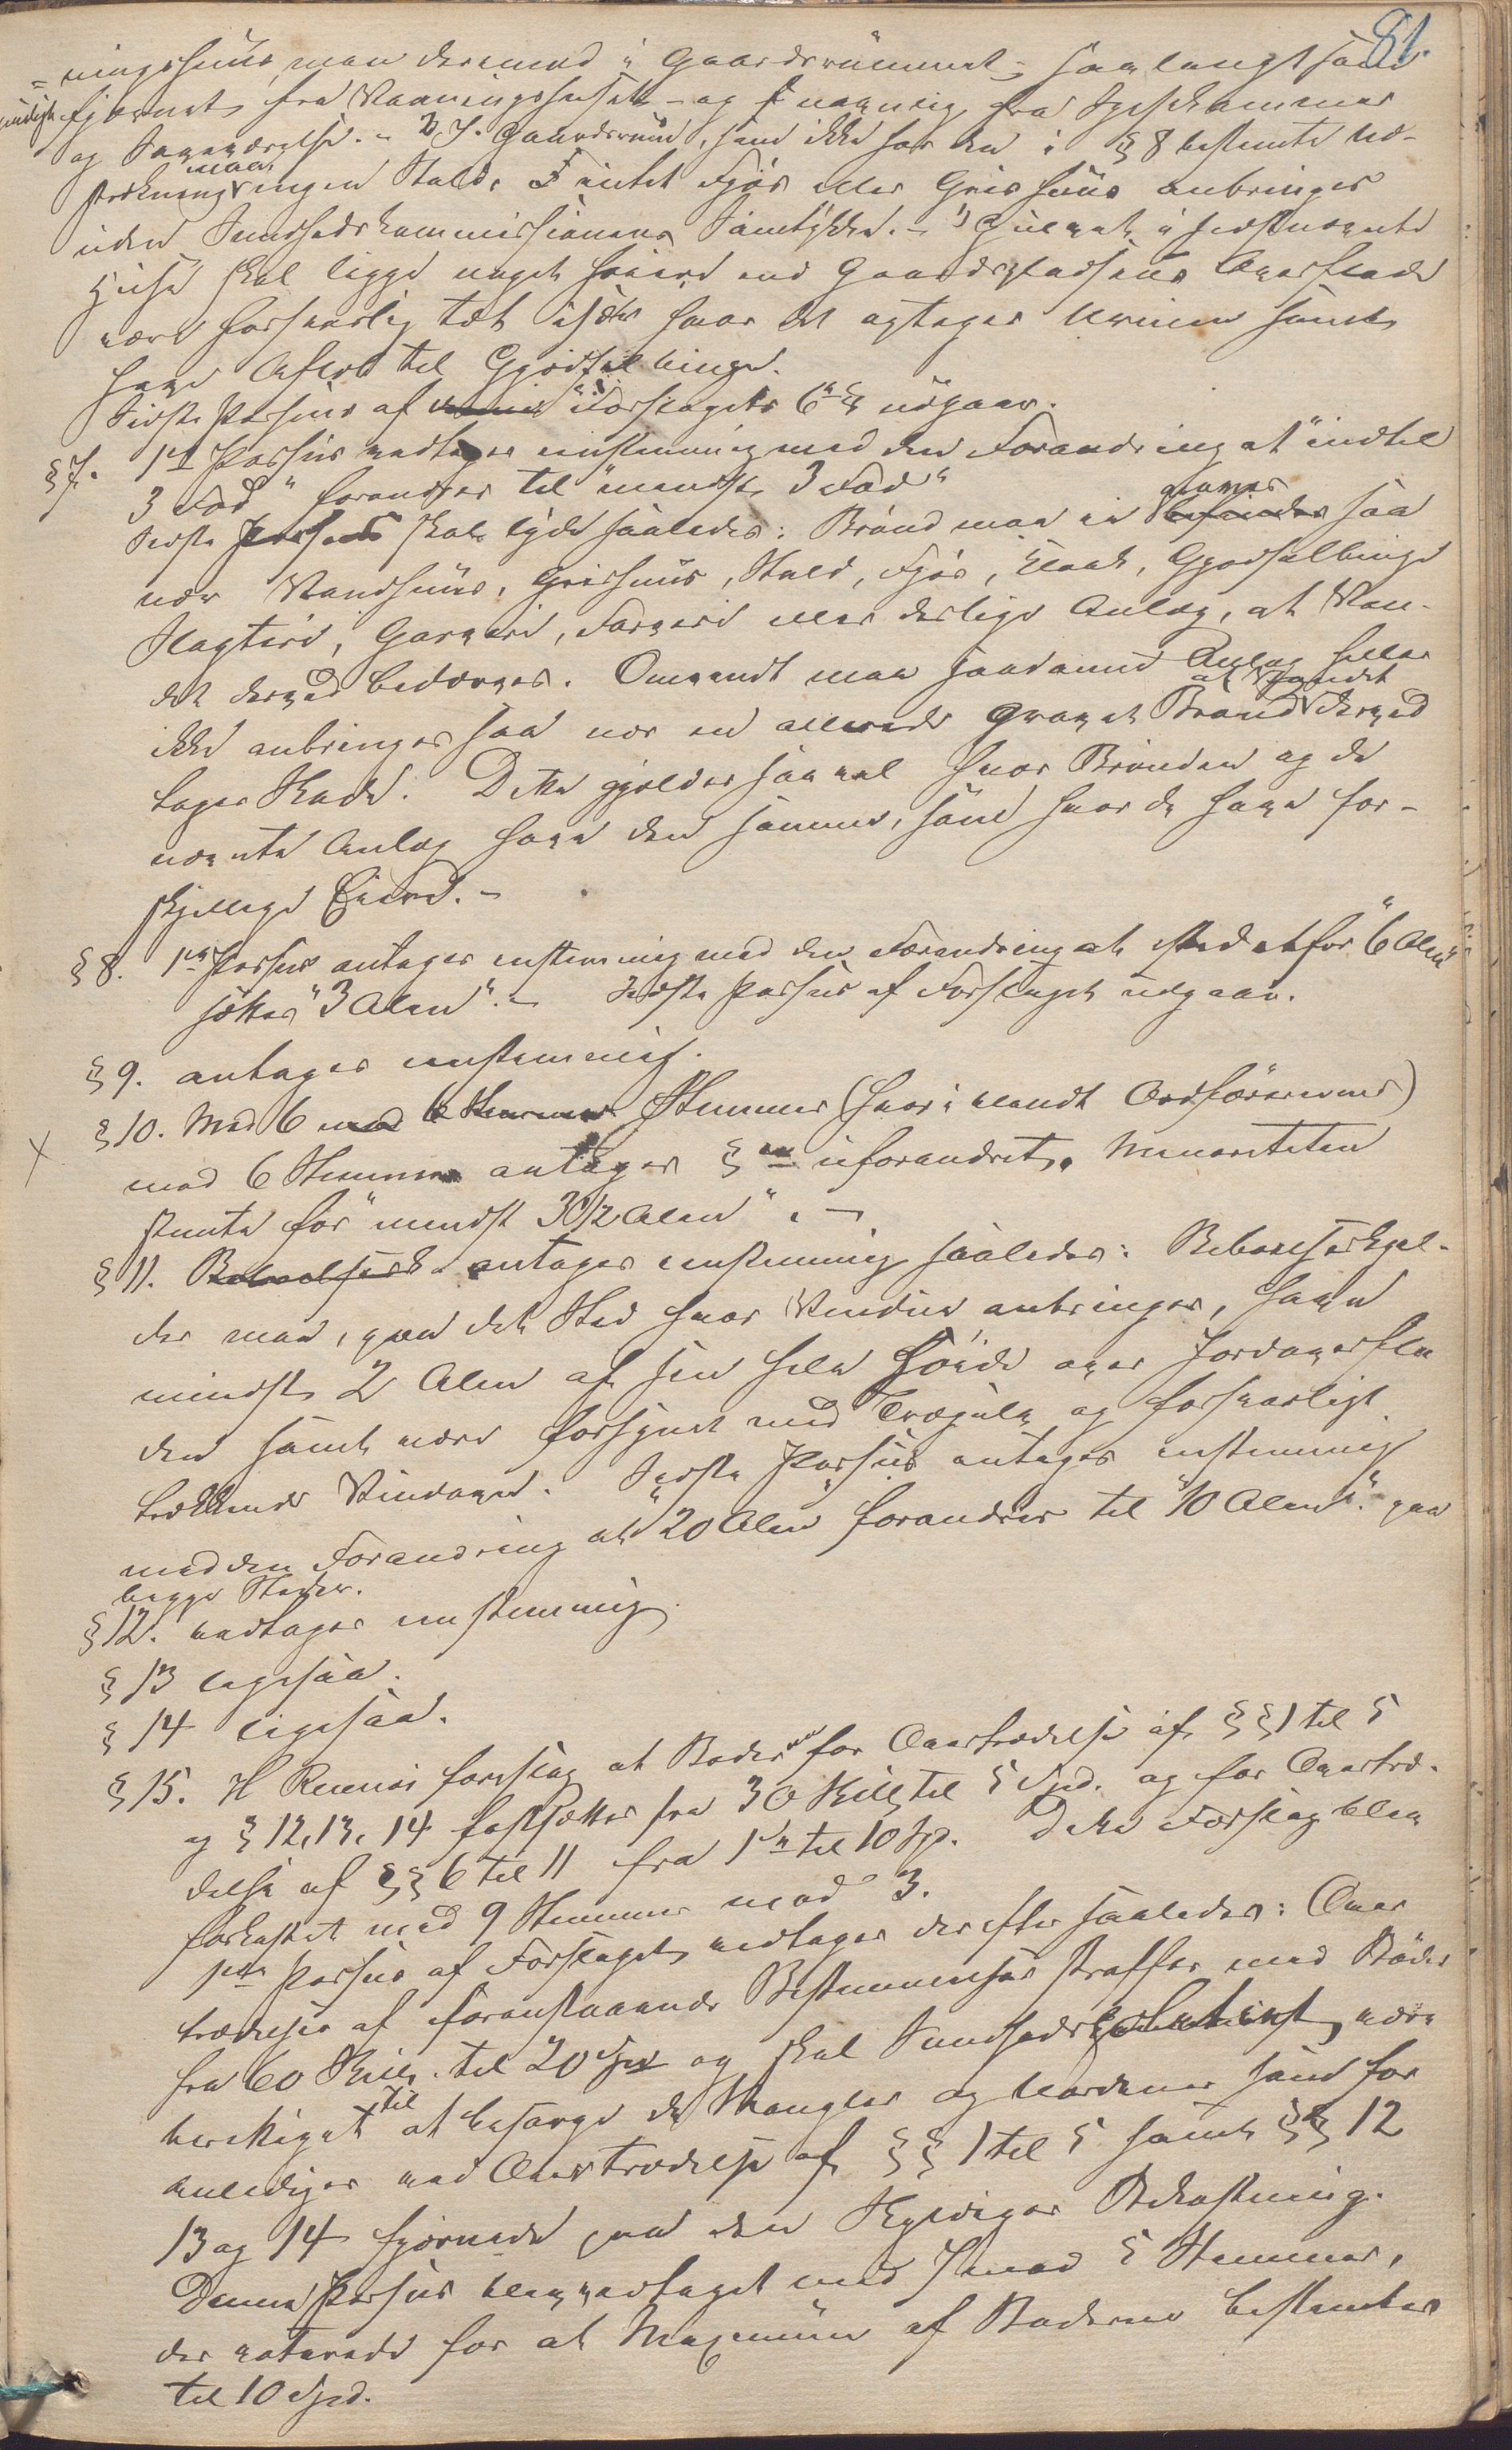 81.
=ningshuus, man derimod i Gaardsrummet, saa langt som
muligt fjærnet fra Vaaningshuset – og fornemmelig fra Spisekammer
og Soveværelse. – 2, I Gaardsrum, som ikke har den i § 8 bestemte Ud-
strækning maa ingen Stald, Fjøs eller Griishuus anbringes
uden Sundhedskommissionens Samtykke. – Gulvet i sidstnævnte
Huse skal ligge noget høiere end Gaardspladsens Overflade
være forsvarlig tæt især hvor det optager Urinen samt
have Afløb til Gjødselbinge.
Sidste Passus af Forslagets 6te § udgaar.
§ 7. 1ste Passus vedtages enstemmig med den Forandring at "indtil
3 Fod" forandres til "mindst 3 Fod"
Sidste Passus skal lyde saaledes: Brønd maa ei graves saa
nær Vandhuus, Griishuus, Stald, Fjøs, Kloak, Gjødselbinge
Slagteri, Garveri, Farveri eller deslige Anlæg, at Van-
det derved bedærves. Omvendt maa saadanne Anlæg heller
ikke anbringes saa nær en allerede gravet Brønd at Vandet derved
tager Skade. Dette gjelder saavel hvor Brønden og de
nævnte Anlæg have den samme, som hvor de have for-
skjellige Eiere. –
§ 8. 1ste Passus antages enstemmig med den Forandring at istedetfor "6 Alen"
sættes "3 Alen". – Sidste Passus af Forslaget udgaar.
§ 9. antages enstemmig.
§ 10. Med 6 mod 6 Stemmer Stemmer (hvoriblandt Ordførerens)
mod 6 Stemmer antages §en uforandret. Minoriteten
stemte for "mindst 3 1/2 Alen". –
§ 11. Beboelsesk antages enstemmig saaledes: Beboelseskjel-
der maa, paa det Sted hvor Vinduer anbringes, have
mindst 2 Alen af sin hele Høide over Jordoverfla
den samt være forsynet med Trægulv og forsvarligt
lukkende Vinduer. Sidste Passus antages enstemmig
med den Forandring at "20 Alen" forandres til "10 Alen". paa
begge Steder.
§ 12. vedtages enstemmig.
§ 13 ligesaa.
§ 14 ligesaa.
§ 15. H foreslog at Bøderne for Overtrædelse af §§ 1 til 5
og § 12, 13, 14 fastsættes fra 30 Skill til 5 Spd. og for Overtræ-
delse af §§ 6 til 11 fra 1 til 10 Spd. Dette Forslag blev
forkastet med 9 Stemmer mod 3.
1ste Passus af Forslaget vedtages derefter saaledes: Over
trædelse af foranstaaende Bestemmelser straffes med Bøder
fra 60 Skill. til 20 Spd og skal Sundheds være
berettiget til at besørge de Mangler og Uordener som for
anlediges ved Overtrædelse af §§ 1 til 5 samt §§ 12
13 og 14 fjernede paa den Skyldiges Bekostning.
Denne Passus blev vedtaget med 7 mod 5 Stemmer,
der voterede for at Maximum af Bøderne bestemtes
til 10 Spd.